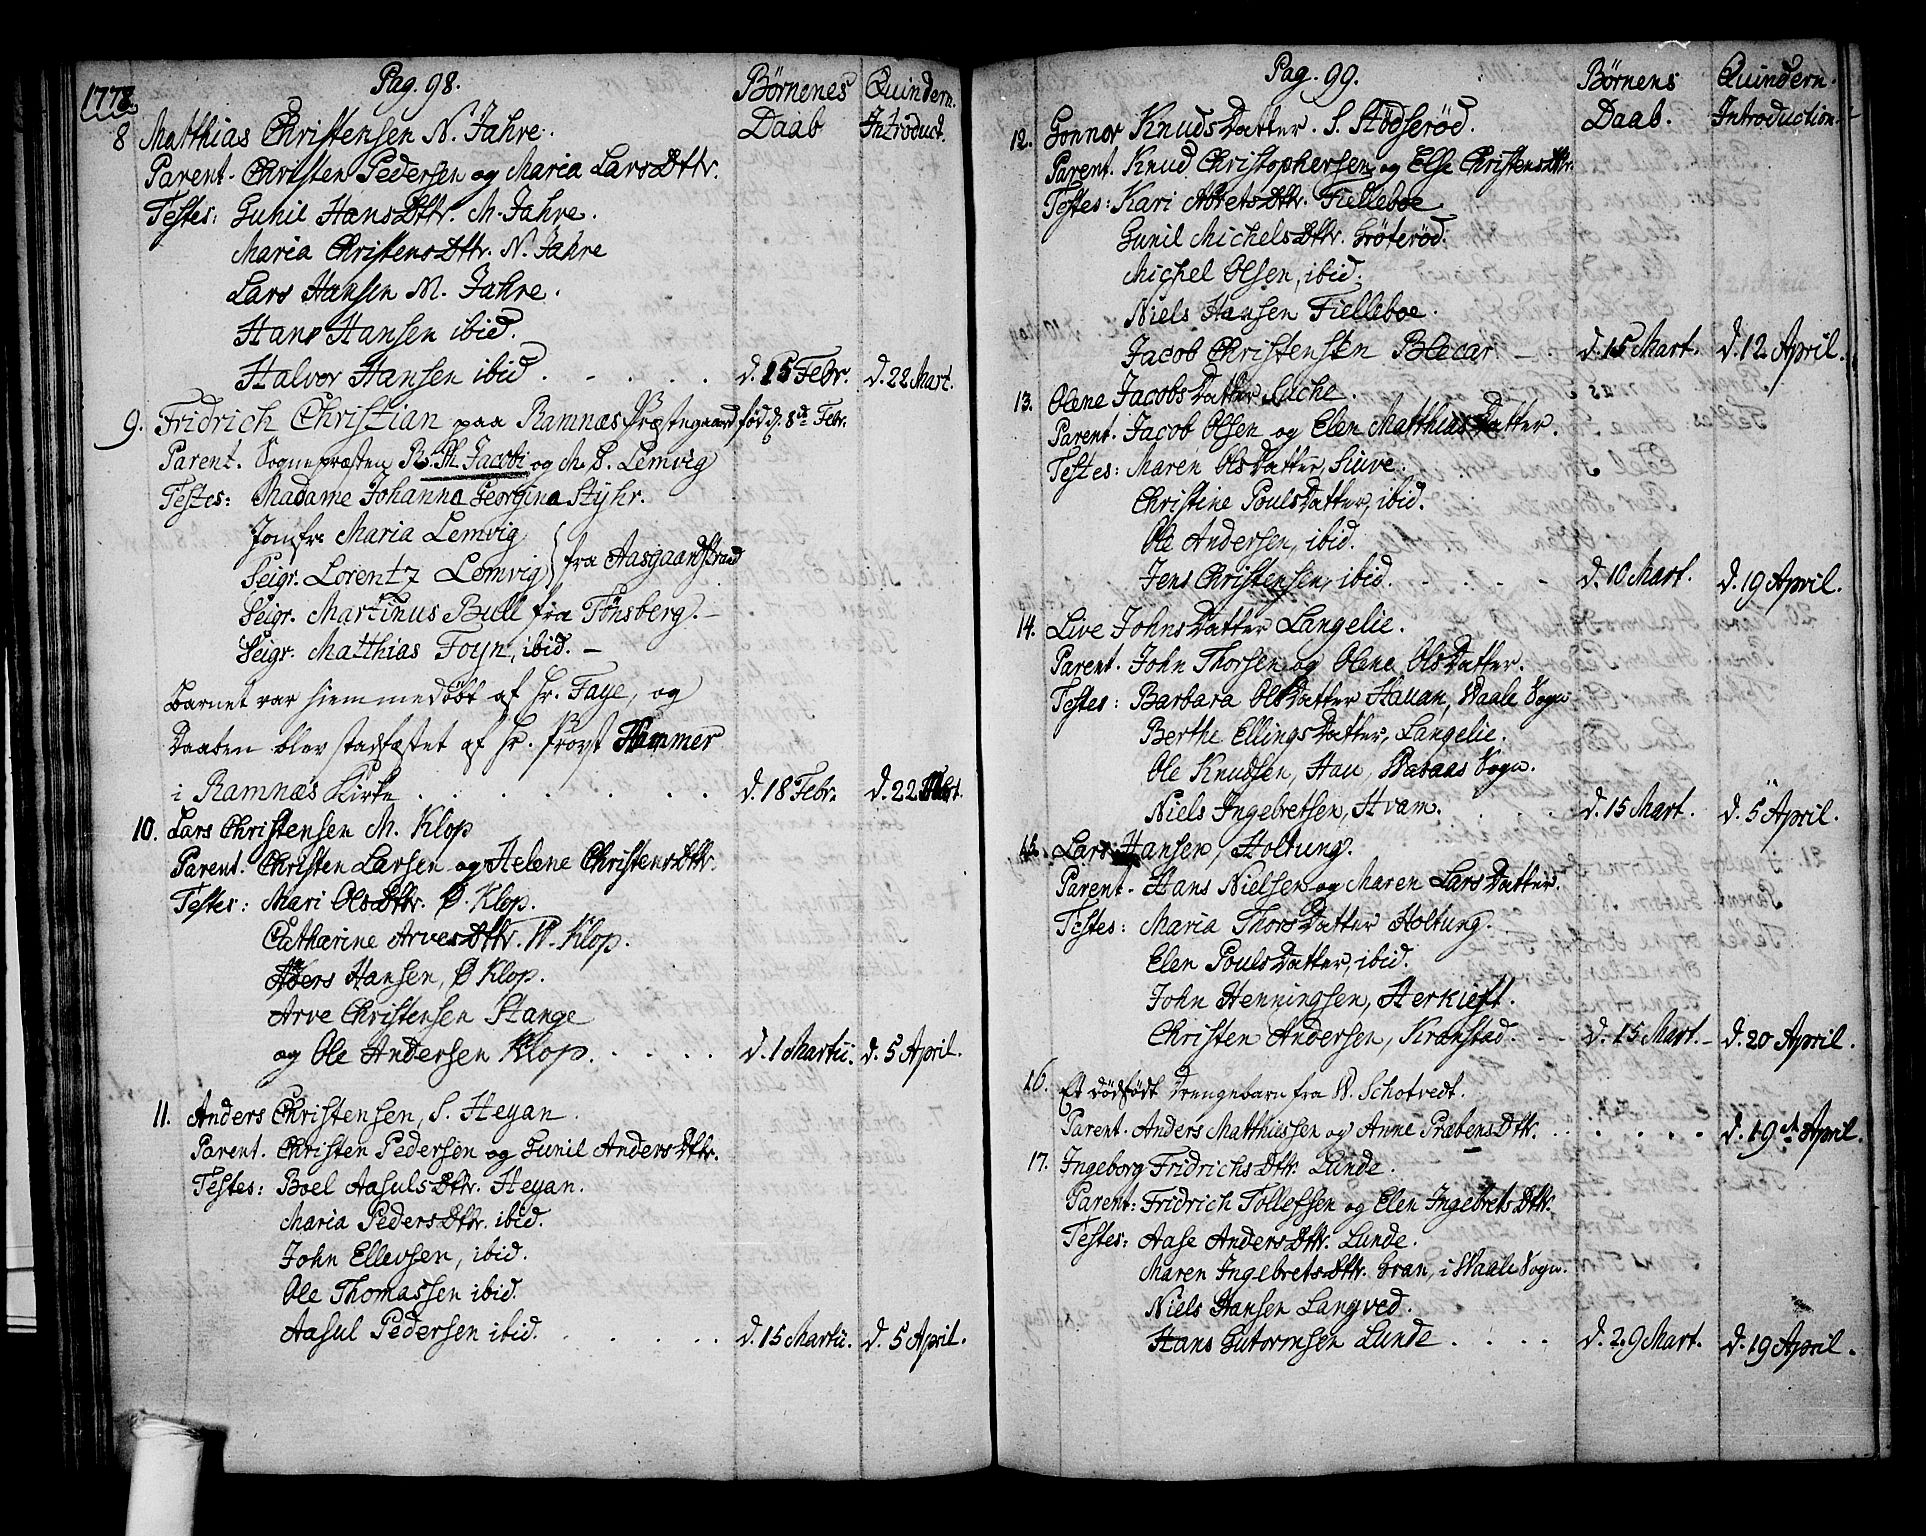 1778.
Pag. 98.
Börnenes Daab
Quindern. Introduct.
8 Matthias Christensen N. Jahre.
Parent. Christen Pedersen og Maria LarsDttr.
Testes: Gunil HansDttr. M. Jahre.
Maria ChristensDttr. N. Jahre
Lars Hansen M. Jahre.
Hans Hansen ibid.
Halvor Hansen ibid. . . . . d. 15 Febr. d. 22 Mart.
9. Fridrich Christian paa Ramnæs Præstegaard fød d. 8d Febr.
Parent. Sognepræsten Jacobi og M. S. Lemvig
Testes: Madame Johanna Georgina Styhr.
Jomfr. Maria Lemvig
Seigr. Lorentz Lemvig } fra Aasgaardstrand
Seigr. Martinus Bull fra Tönsberg. –
Seigr. Matthias Foyn, ibid. –
Barnet var hiemmedöbt af Hr. Faye, og
Daaben blev stadfæstet af Hr. Provst Hammer
i Ramnæs Kirke . . . . . . . d. 18 Febr. d. 22 Mart.
10. Lars Christensen M. Klop
Parent. Christen Larsen og Helene ChristensDttr.
Testes: Mari OlsDttr. Ø. Klop.
Catharine ArvesDttr. W. Klop.
Hansen, Ø Klop.
Arve Christensen Stange
og Ole Andersen Klop. . . . . d. 1 Martii. d. 5 April.
11. Anders Christensen, S. Heyan.
Parent. Christen Pedersen og Gunil AndersDttr.
Testes: Boel AasulsDttr. Heyan.
Maria PedersDttr. ibid.
John Ellevsen, ibid.
Ole Thomassen ibid.
Aasul Pedersen ibid. . . . . d. 15 Martii. d. 5 April.
Pag. 99.
Börnens Daab.
Quindern. Introduction.
12. Gonnor KnudsDatter. S. Stödseröd.
Parent. Knud Christophersen og Else ChristensDttr.
Testes: Kari Fielleboe
Gunil MichelsDttr. Gröteröd.
Michel Olsen, ibid.
Niels Hansen Fielleboe.
Jacob Christensen Blecar – . d. 15 Mart. d. 12 April.
13. Olene JacobsDatter Liche.
Parent. Jacob Olsen og Elen MatthiasDatter.
Testes: Maren OlsDatter, Siuve.
Christine PoulsDatter, ibid.
Ole Andersen, ibid.
Jens Christensen, ibid. . . . . d. 10 Mart. d. 19 April.
14. Live JohnsDatter Langelie.
Parent. John Thorsen og Olene OlsDatter.
Testes: Barbara OlsDatter Hauan, Waale Sogn
Berthe EllingsDatter, Langelie.
Ole Knudsen, Hau, Sogn.
Niels Ingebretsen, Hvam. . . . d. 15 Mart. d. 5 April.
15. Lars Hansen, Holtung.
Parent. Hans Nielsen og Maren LarsDatter.
Testes: Maria ThorsDatter Holtung.
Elen PoulsDatter, ibid.
John Henningsen, Herkieft.
Christen Andersen, Kranstad. – – d. 15 Mart. – d. 20 April.
16. Et dödfödt Drengebarn fra W. Schotvedt.
Parent. Anders Matthiassen og Anne PræbensDttr. . . . . . d. 19de April.
17. Ingeborg FridrichsDttr. Lunde.
Parent: Fridrich Tollefssen og Elen IngebretsDttr.
Testes: Aase AndersDttr. Lunde.
Maren IngebretsDttr. Gran, i Waale Sogn.
Niels Hansen Langved.
Hans Gutormsen Lunde . . . . d. 29 Mart. d. 19 April.